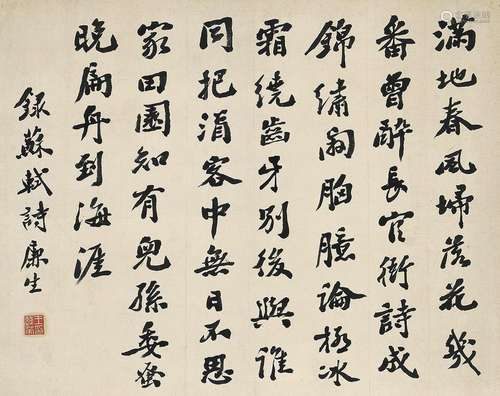 滿地春風掃落花幾
番曾醉長官衙詩成
錦繡開胸臆論極冰
霜繞齒牙別後與誰
同把酒客中無日不思
家田園知有兒孫委蚤
晚扁舟到海涯
錄蘇軾詩廉生